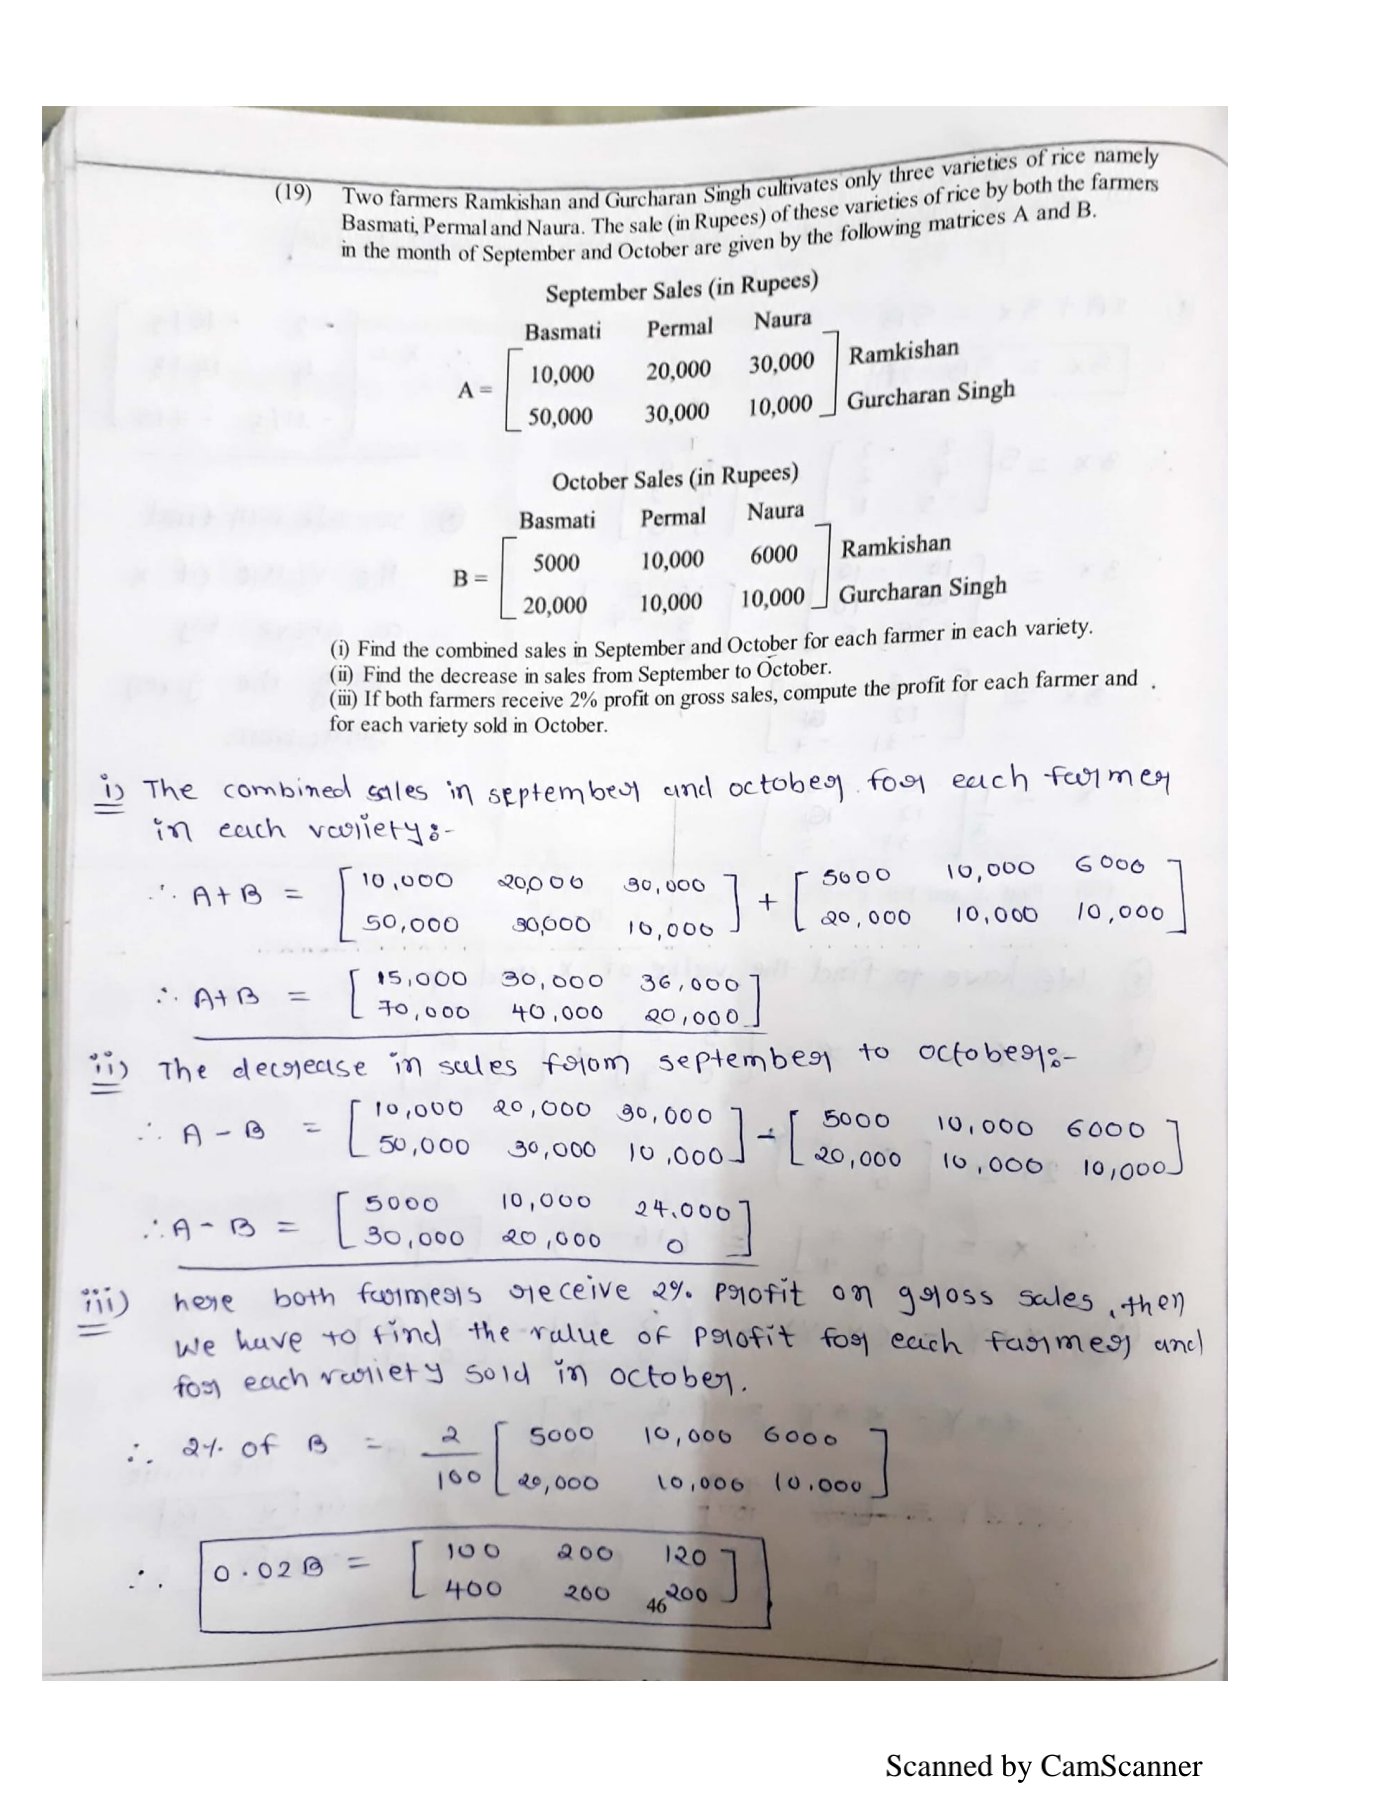 (19) Two farmers Ramkishan and Gurcharan Singh cultivates only three varieties of rice namely
Basmati, Permal and Naura. The sale (in Rupees) of these varieties of rice by both the farmers
in the month of September and October are given by the following matrices A and B.
September Sales (in Rupees)
Basmati Permal Naura
A = [ 10,000 20,000 30,000 ] Ramkishan
50,000 30,000 10,000 Gurcharan Singh
October Sales (in Rupees)
Basmati Permal Naura
B = [ 5000 10,000 6000 ] Ramkishan
20,000 10,000 10,000 Gurcharan Singh
(i) Find the combined sales in September and October for each farmer in each variety.
(ii) Find the decrease in sales from September to October.
(iii) If both farmers receive 2% profit on gross sales, compute the profit for each farmer and
for each variety sold in October.
i) The combined sales in september and october for each farmer
in each variety:-
∴ A+B = [ 10,000 20,000 30,000 ] + [ 5000 10,000 6000 ]
50,000 30,000 10,000 20,000 10,000 10,000
∴ A+B = [ 15,000 30,000 36,000 ]
70,000 40,000 20,000
ii) The decrease in sales from september to october:-
∴ A - B = [ 10,000 20,000 30,000 ] - [ 5000 10,000 6000 ]
50,000 30,000 10,000 20,000 10,000 10,000
∴ A - B = [ 5000 10,000 24,000 ]
30,000 20,000 0
iii) here both farmers receive 2% profit on gross sales, then
we have to find the value of profit for each farmer and
for each variety sold in october.
∴ 2% of B = 2/100 [ 5000 10,000 6000 ]
20,000 10,000 10,000
∴ 0.02B = [ 100 200 120 ]
400 200 200
46
Scanned by CamScanner